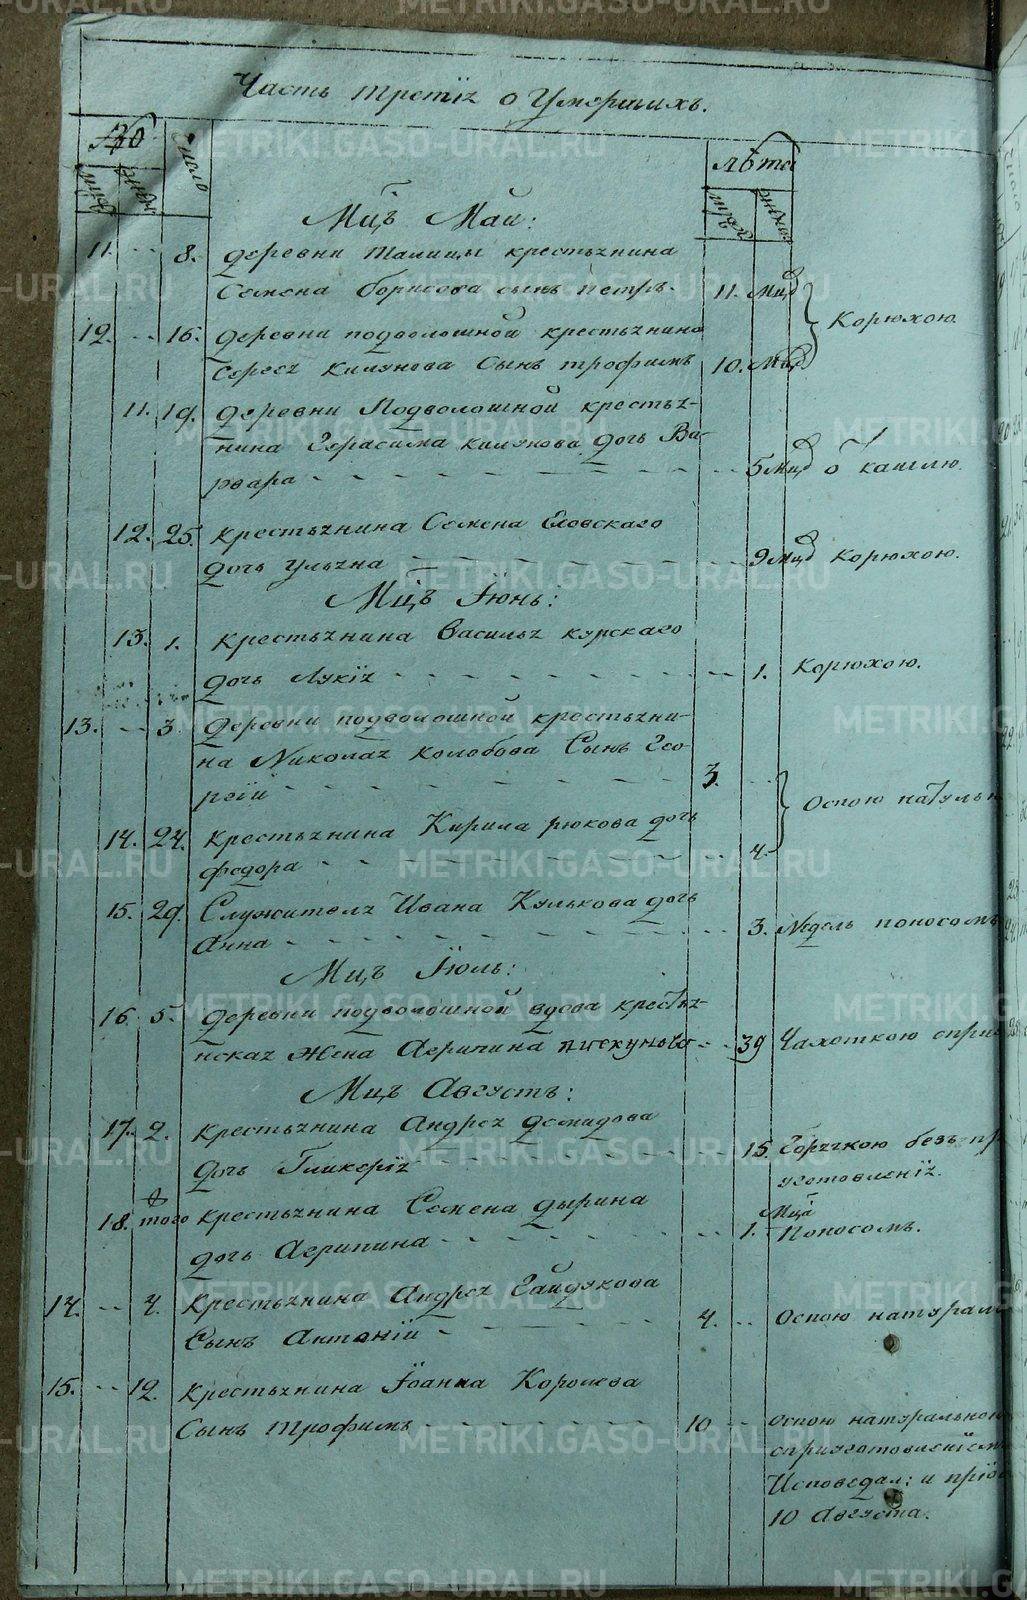 Часть третїя о Умершихъ.
№
Число
Лѣта
муж женс
муж женс
Мцъ Маи:
11. -- 8. деревни талицы крестьянина
Семена борисова сынъ петръ- 11. Мцо
Корюхою.
12. -- 16. деревни подволошной крестьянина
Сергея Килунова Сынъ трофимъ 10. Мцо
11. 19. деревни Подволошной крестья-
нина Герасима килунова дочь Ва-
рвара 5 мцо о кашлю.
12. 25. крестьянина Семена Еловскаго
дочь ульяна 9 мцо Корюхою.
Мцъ Їюнь:
13. 1. крестьянина Васильа курскаго
дочь Лукїя 1. Корюхою.
13. -- 3 деревни подволошной крестьяни-
на Николая колобова Сынъ Гео-
ргїи 3.
Оспою натульн
14. 24. крестьянина Кирила рюкова дочь
федора 4.
15. 29. Служителя Ивана Кулькова дочь
Анна 3. Недель поносомъ
Мцъ Їюль:
16 5. деревни подволошной вдова крестья-
нская жена Агрипина пискунова 39 Чахоткою спри
Мцъ Августъ:
17. 2. крестьянина Андрея демидова
дочь Гликерїя 15 Горячкою безъ пр
уготовленїя.
18. того крестьянина Семена дырина Мца
дочь Агрипина 1. Поносомъ.
14. -- 4. крестьянина Андрея Гайдукова
Сынъ Антонїи 4. Оспою натурал
15. -- 12. крестьянина Їоанна Королева
Сынъ трофимъ 10 Оспою натуральною
сприуготовленїем
Исповедал: и прїо
10 Августа.
METRIKI.GASO-URAL.RU